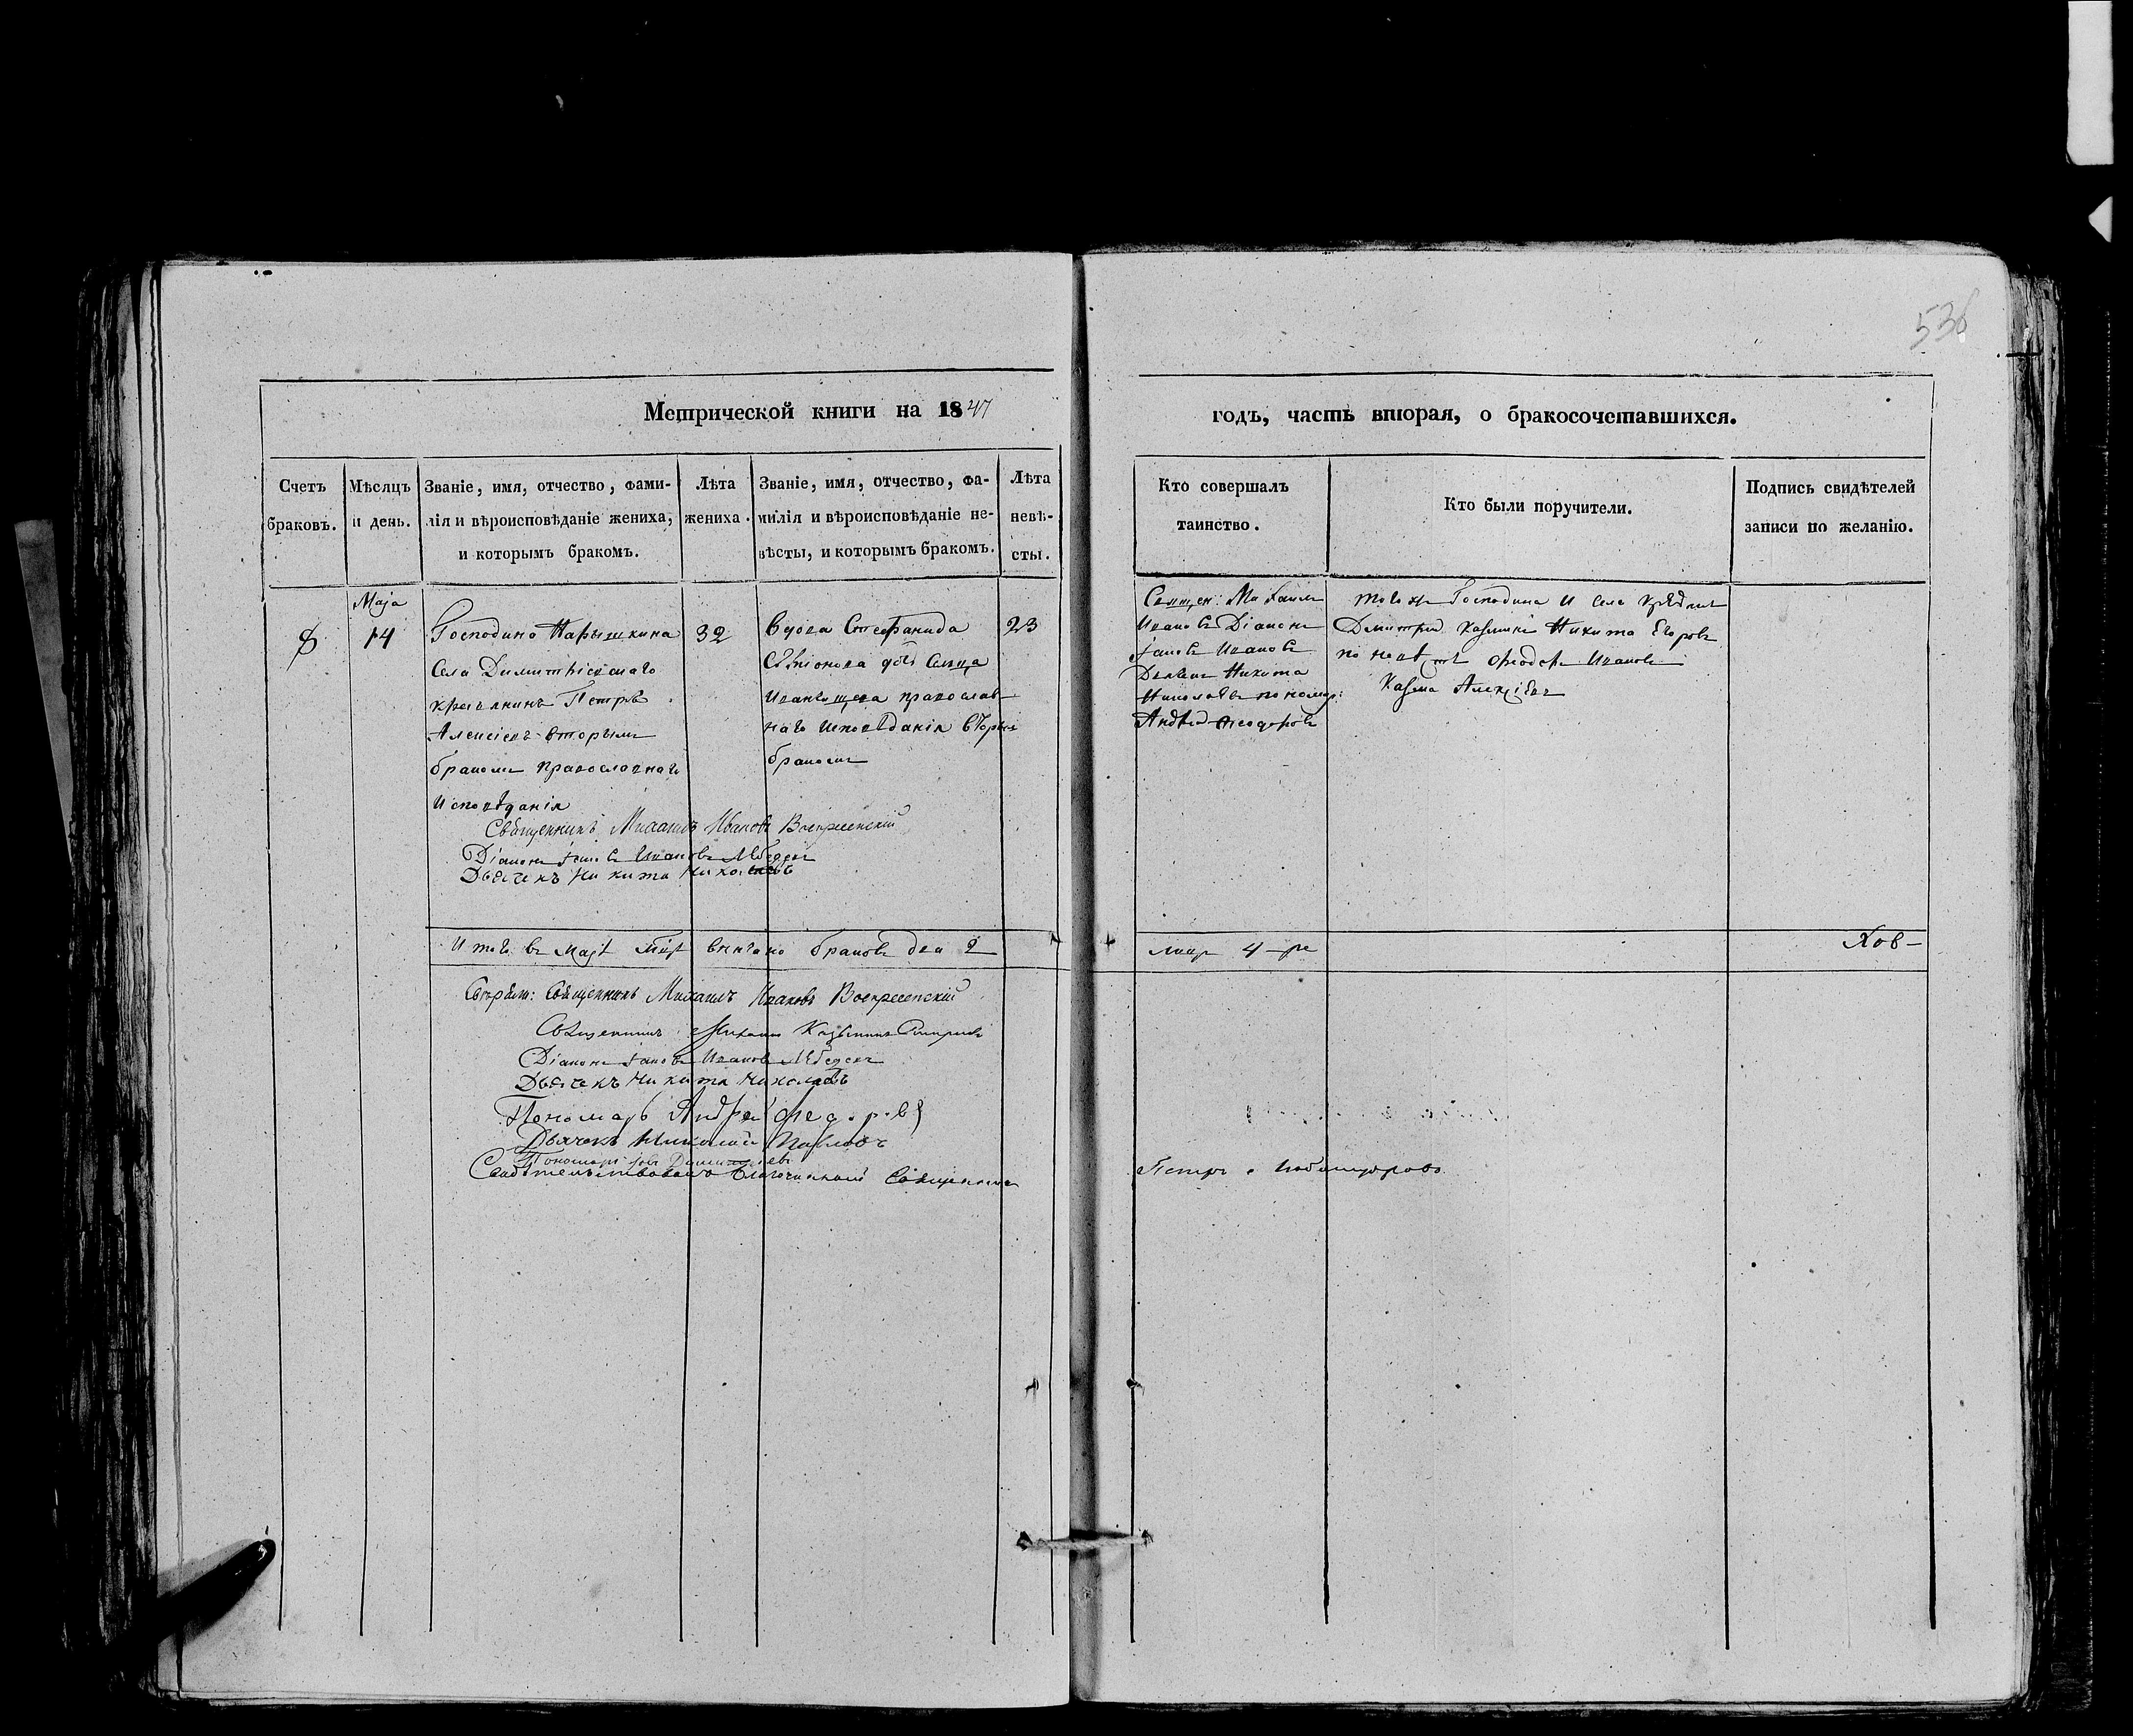 536
Метрической книги на 1847
годъ, часть вторая, о бракосочетавшихся.
Счетъ браковъ.
Мѣсяцъ и день.
Званіе, имя, отчество, фами-
лія и вѣроисповѣданіе жениха,
и которымъ бракомъ.
Лѣта жениха.
Званіе, имя, отчество, фа-
милія и вѣроисповѣданіе не-
вѣсты, и которымъ бракомъ.
Лѣта невѣ-
сты.
Кто совершалъ
таинство.
Кто были поручители.
Подпись свидѣтелей
записи по желанію.
Маја
14
Господина Нарышкина
Села Димитріевскаго
крестьянинъ Петръ
Алексіевъ вторымъ
бракомъ православнаго
Исповѣданія
32
Вдова Стефанида
православ
наго исповѣданія вторым
бракомъ
23
Священ: Михаилъ
Ивановъ Діаконъ
Іаковъ Ивановъ
Дьячекъ Никита
Николаевъ пономар:
Андрей Феодоровъ
того же Господина и села
Димитрій Никита Егоровъ
по невѣстѣ Феодоръ Ивановъ
Казма Алексіевъ
Священникъ Михаилъ Ивановъ Воскресенскій
Діаконъ Іаковъ Ивановъ Лебедевъ
Дьячекъ Никита Николаевъ
Итого въ Маје мцѣ венчано браковъ два 2
Священникъ Михаилъ Ивановъ Воскресенскій
Священникъ Михаилъ
Діаконъ Іаковъ Ивановъ Лебедевъ
Дьячекъ Никита Николаевъ
Пономарь Андрей Федоровъ
Дьячекъ Николай Павловъ
Пономарь
Свидѣтельствовалъ Благочинный Священникъ
Петръ